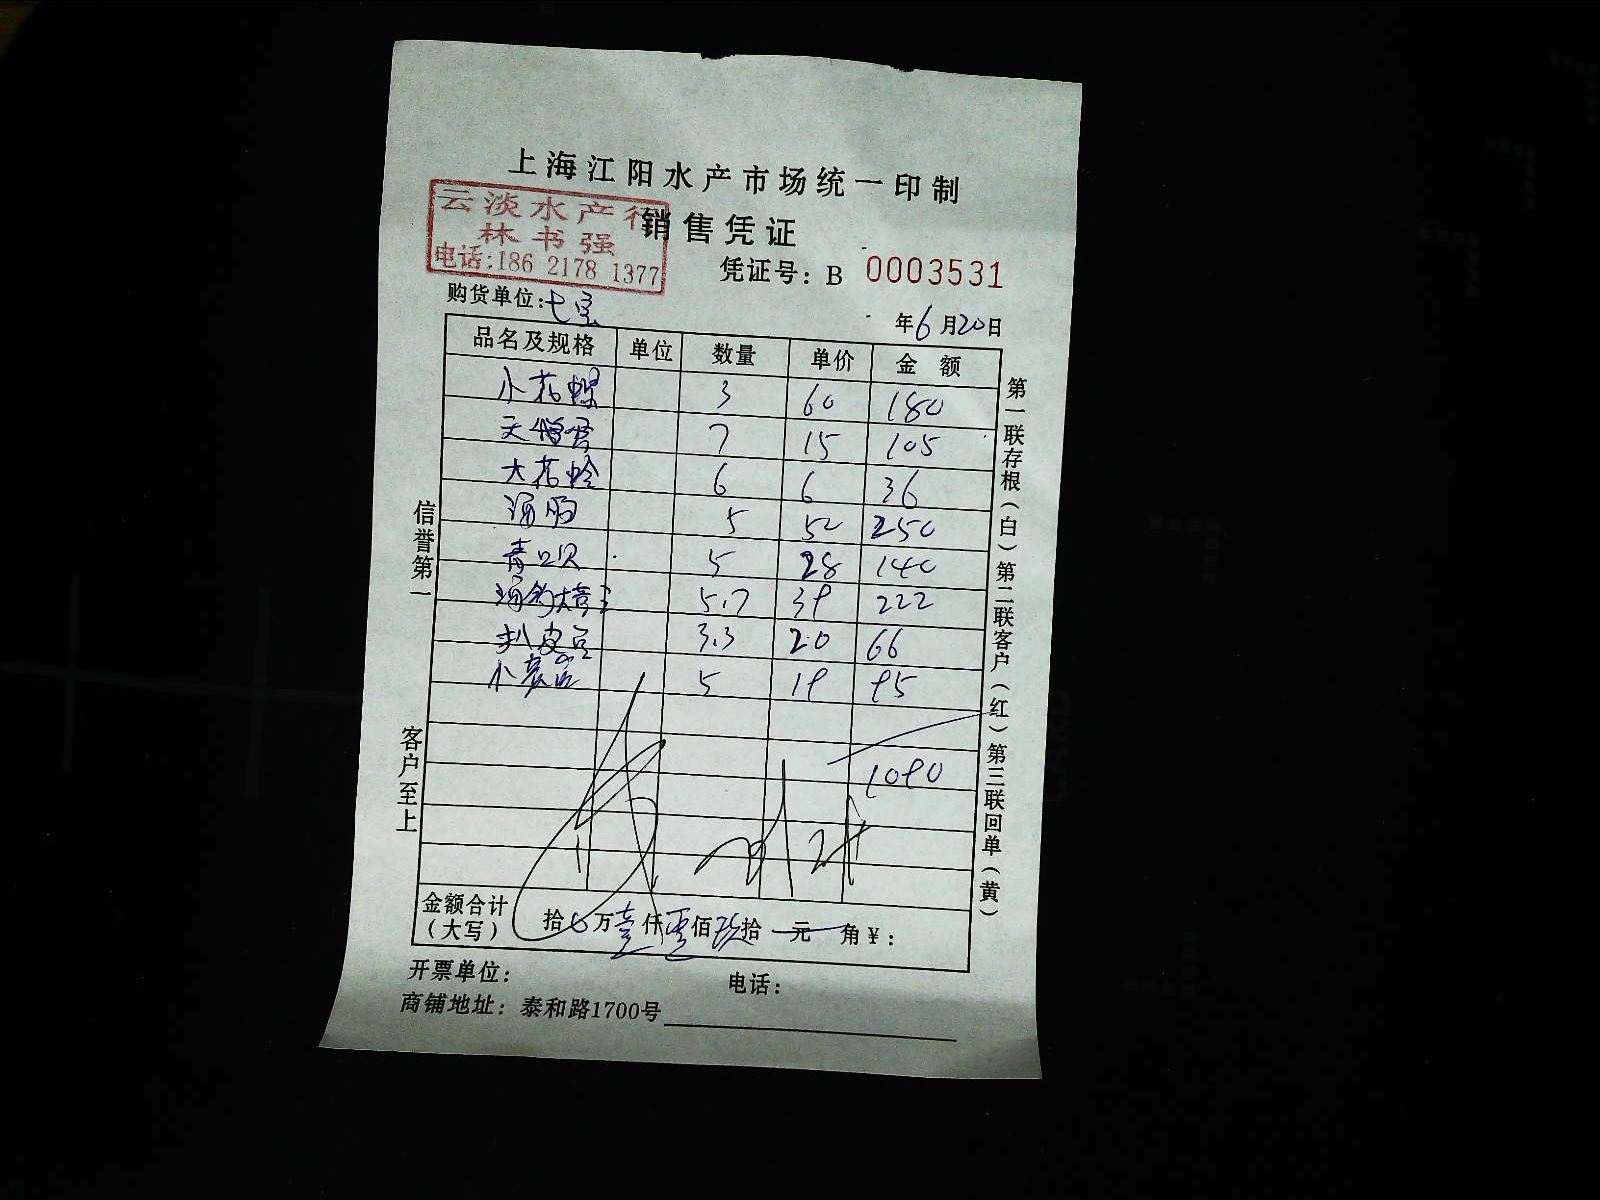 上海江阳水产市场统一印制
云淡水产行
销售凭证
林书强
电话:186 2178 1377
凭证号: B 0003531
购货单位:七宝
年6月20日
品名及规格 单位 数量 单价 金额
小花螺 3 60 180
7 15 105
大花蛤 6 6 36
5 50 250
青口贝 5 28 140
5.7 39 222
扒皮 3.3 20 66
小 5 19 95
1090
金额合计(大写) 拾 万壹仟零佰玖拾 元 角¥:
开票单位: 电话:
商铺地址: 泰和路1700号
信誉第一
客户至上
第一联存根(白)第二联客户(红)第三联回单(黄)